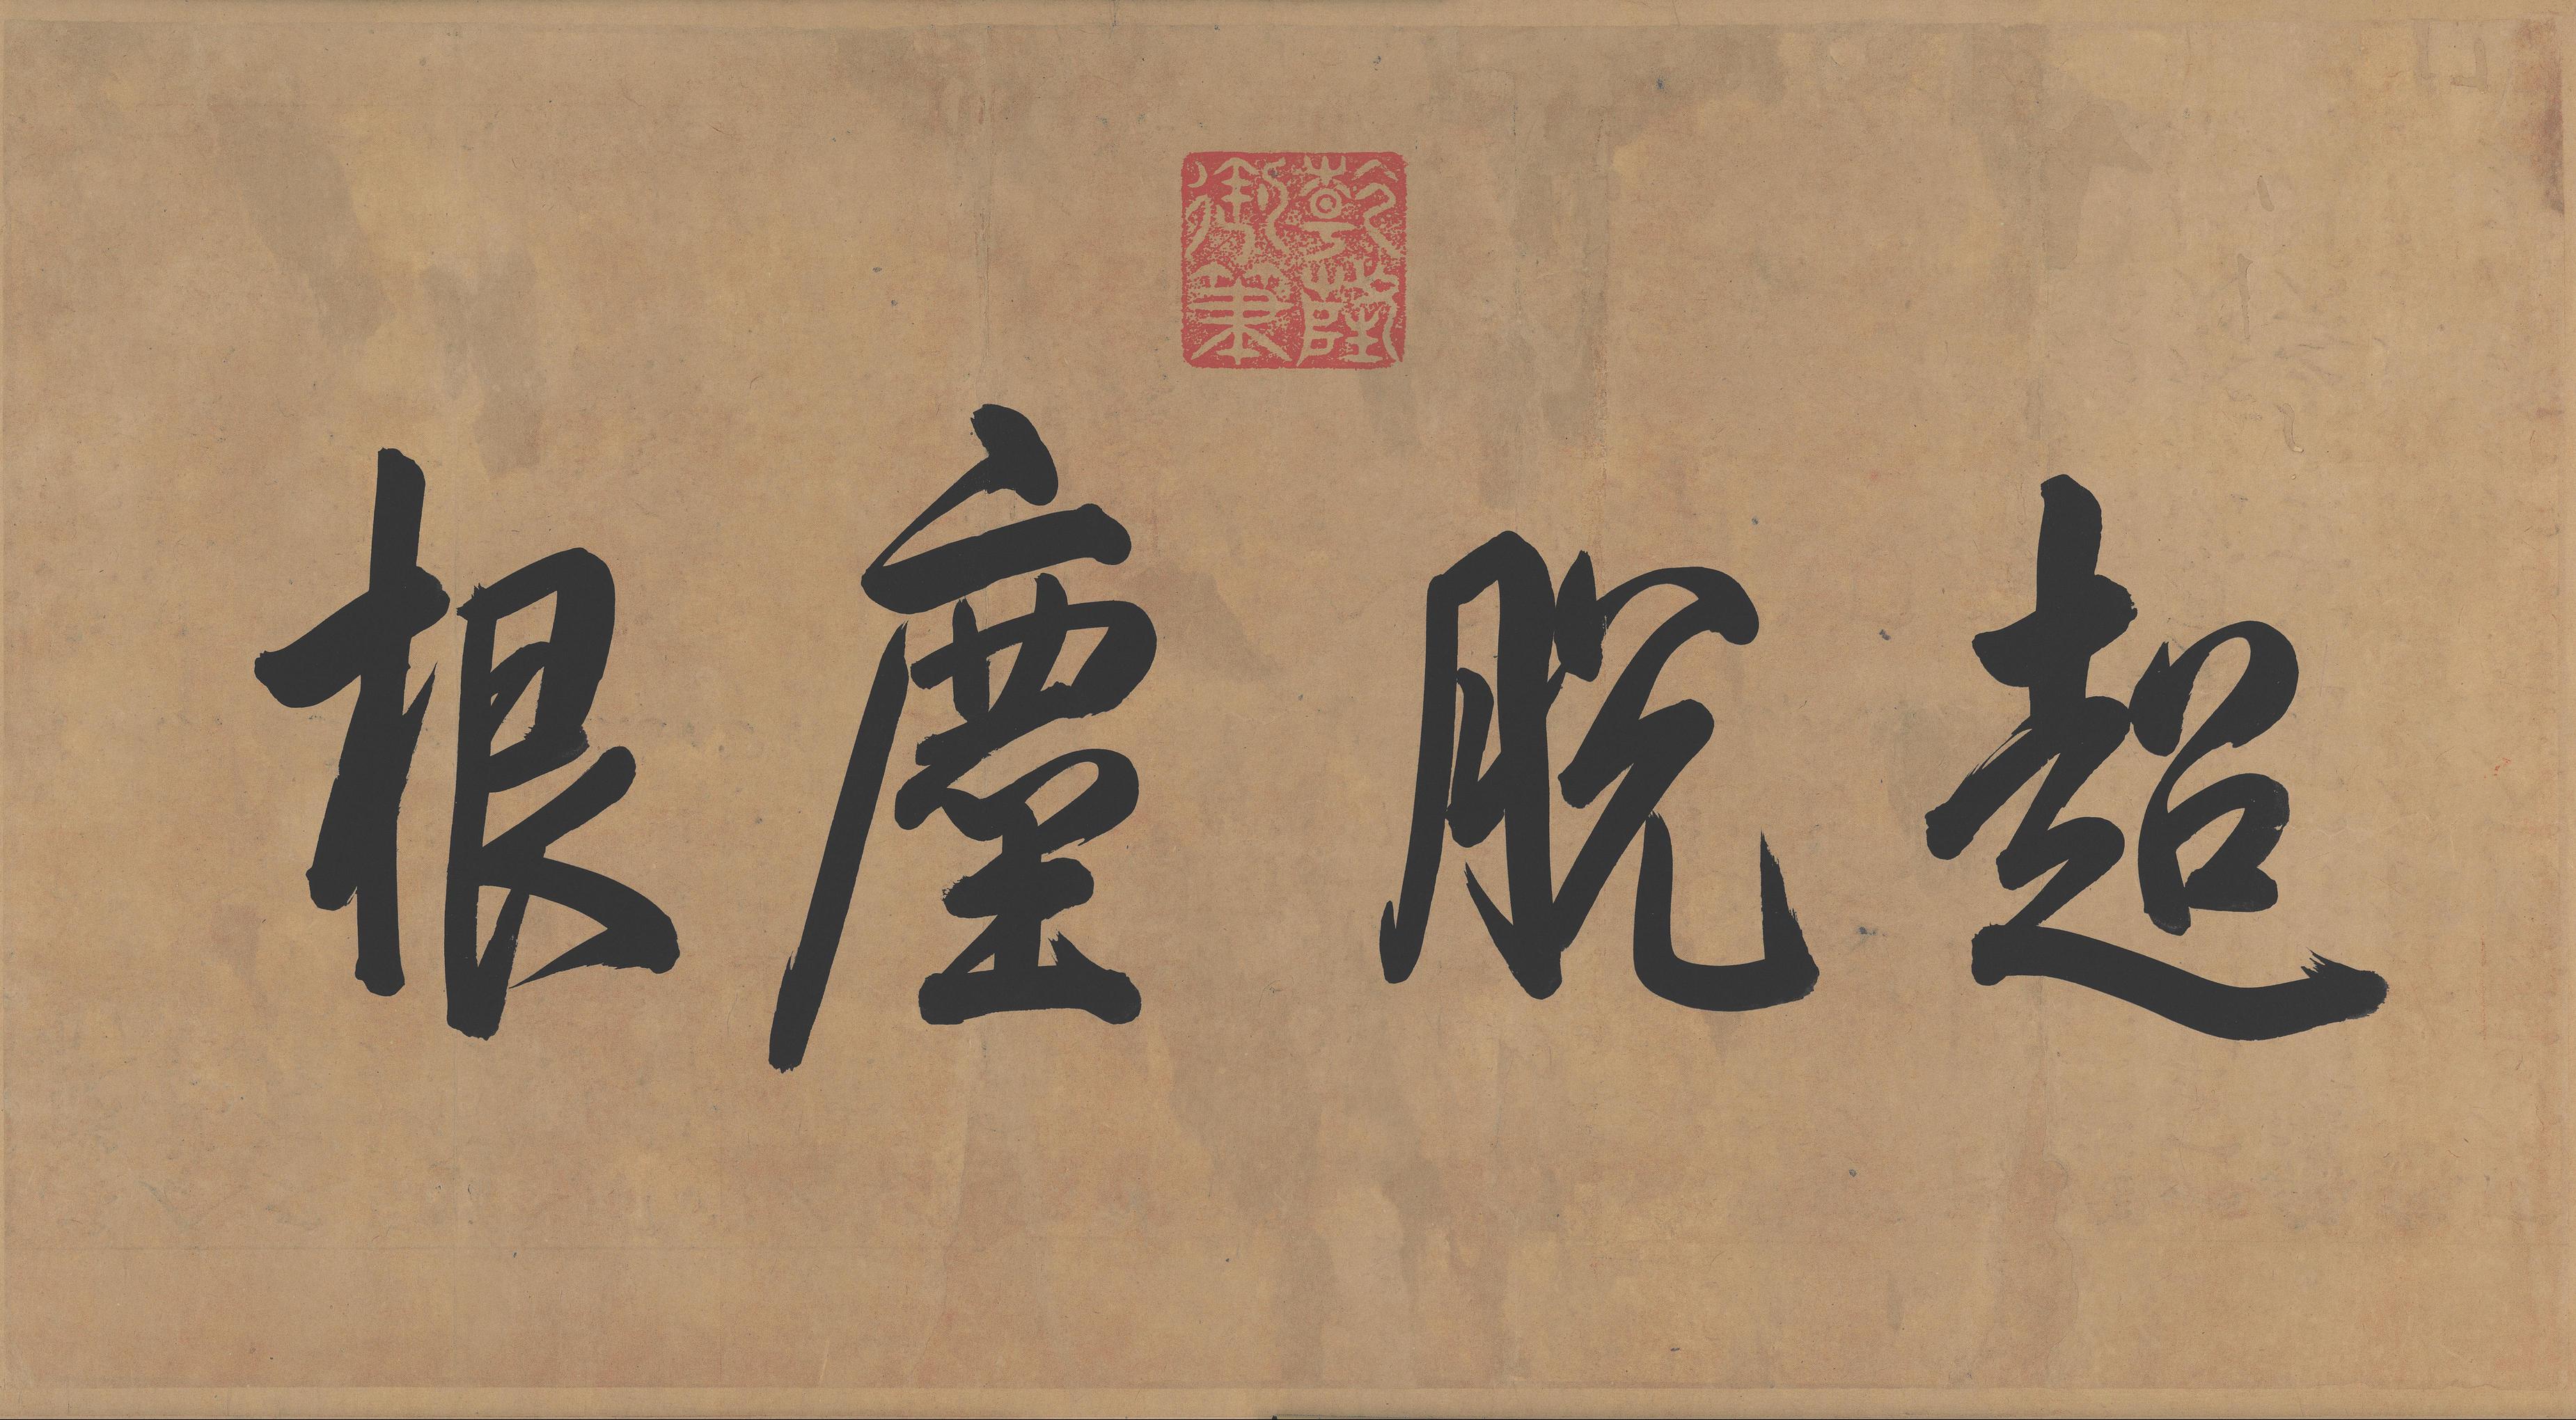 乾隆
御筆
超脫塵根